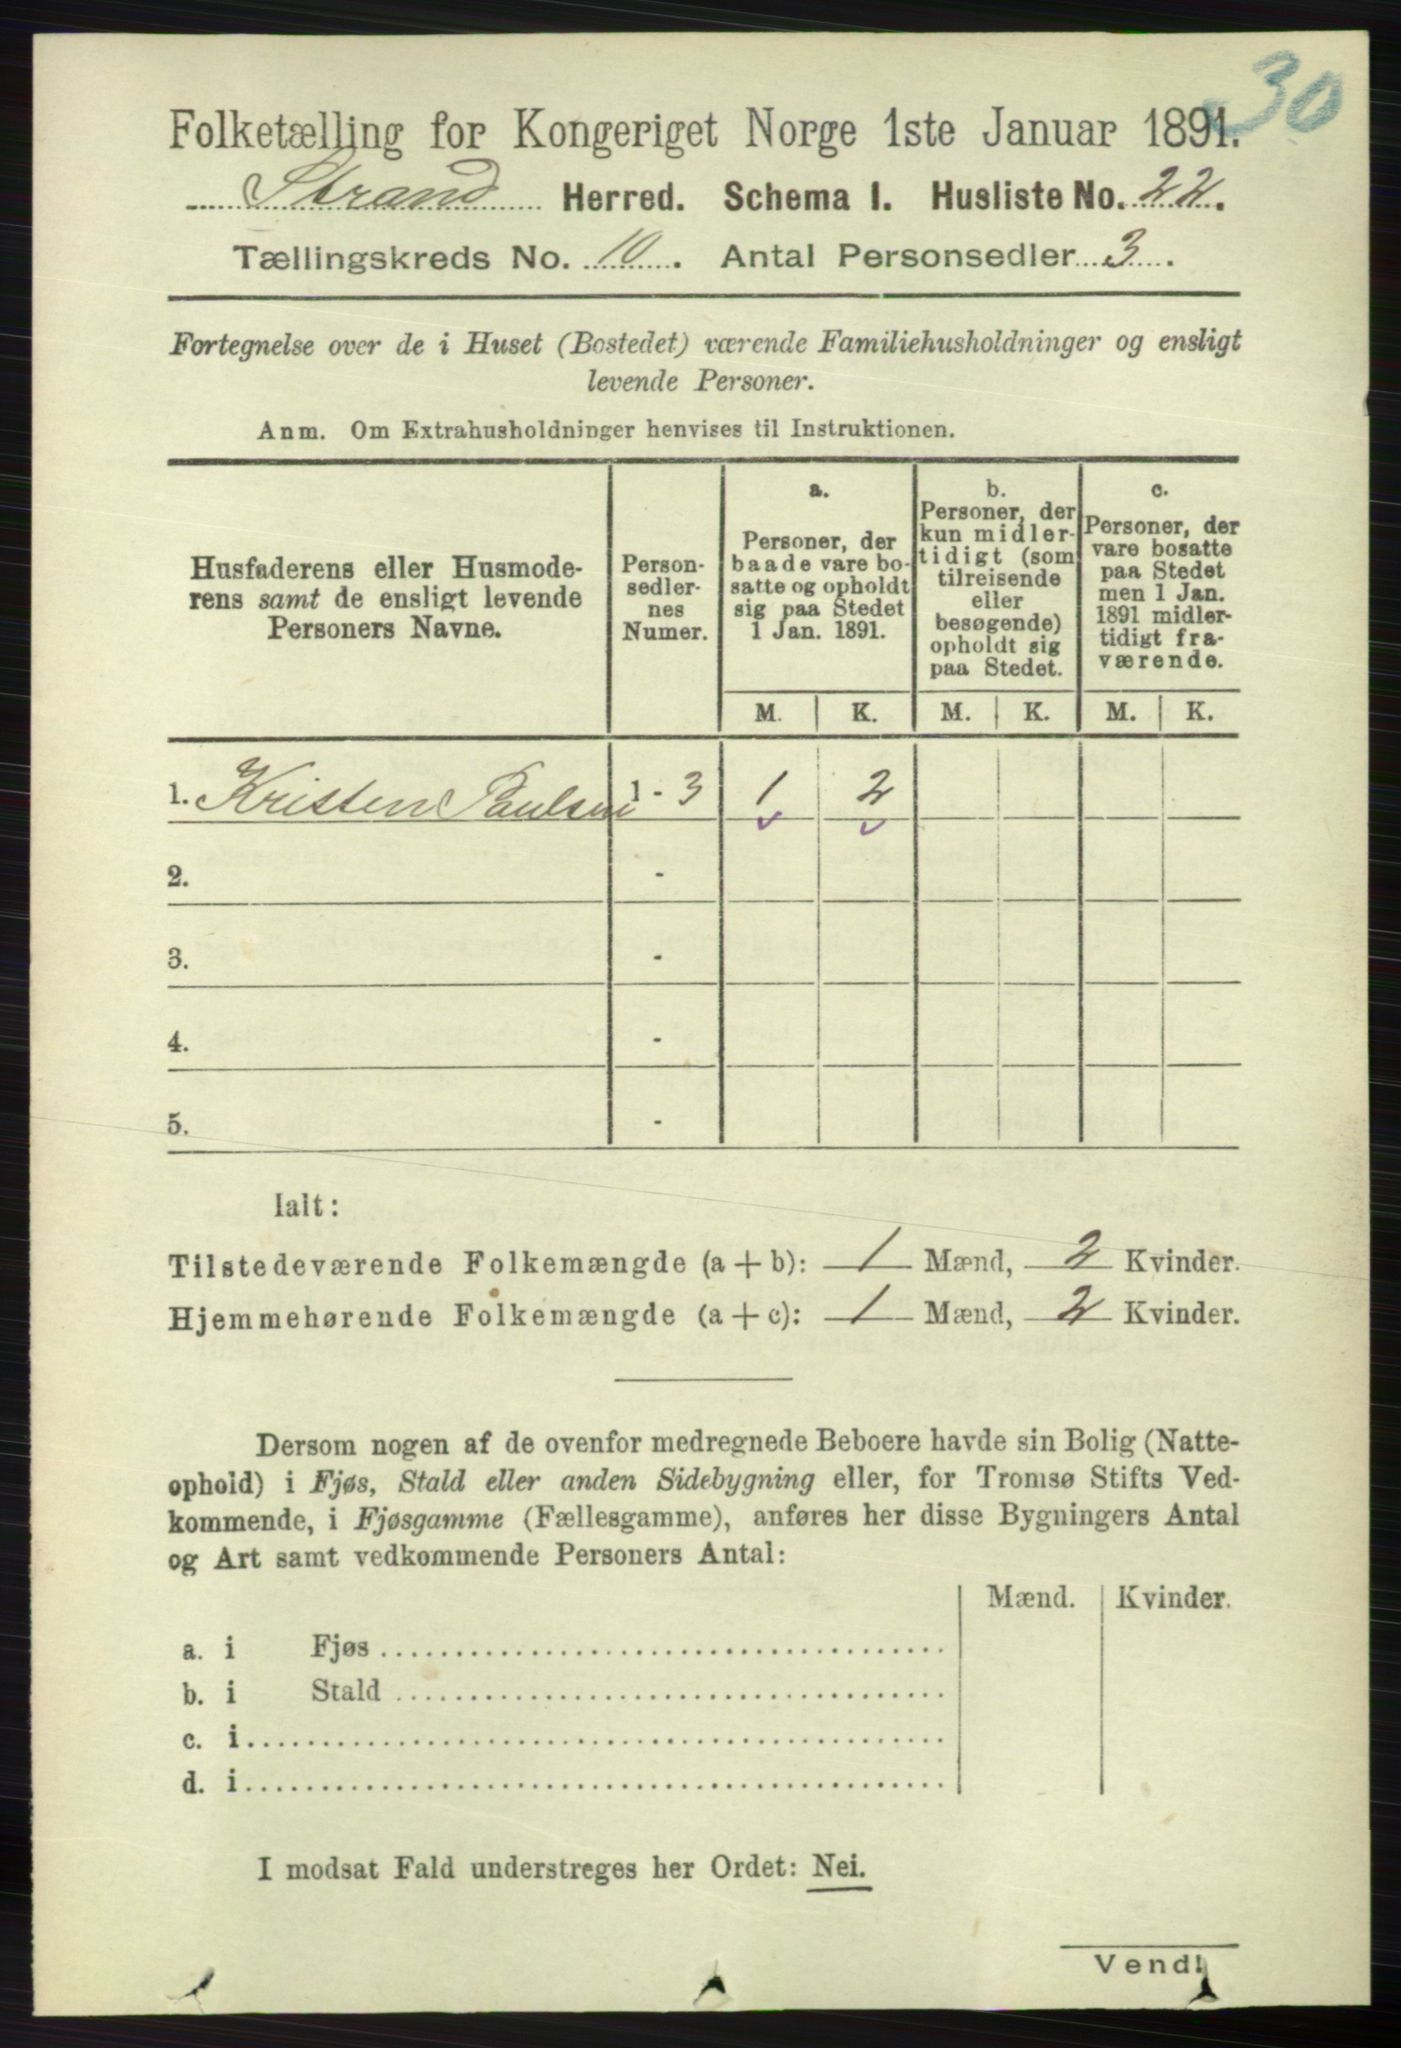 30
Folketælling for Kongeriget Norge 1ste Januar 1891.
Strand Herred. Schema I. Husliste No. 22.
Tællingskreds No. 10. Antal Personsedler 3.
Fortegnelse over de i Huset (Bostedet) værende Familiehusholdninger og ensligt
levende Personer.
Anm. Om Extrahusholdninger henvises til Instruktionen.
Husfaderens eller Husmode-
rens samt de ensligt levende
Personers Navne.
Person-
sedler-
nes
Numer.
a.
Personer, der
baade vare bo-
satte og opholdt
sig paa Stedet
1 Jan. 1891.
b.
Personer, der
kun midler-
tidigt (som
tilreisende
eller
besøgende)
opholdt sig
paa Stedet.
c.
Personer, der
vare bosatte
paa Stedet
men 1 Jan.
1891 midler-
tidigt fra-
værende.
M. K. M. K. M. K.
1. Kristen Paulsen 1 - 3 1 2
2. -
3. -
4. -
5. -
Ialt:
Tilstedeværende Folkemængde (a + b): 1 Mænd, 2 Kvinder.
Hjemmehørende Folkemængde (a + c): 1 Mænd, 2 Kvinder.
Dersom nogen af de ovenfor medregnede Beboere havde sin Bolig (Natte-
ophold) i Fjøs, Stald eller anden Sidebygning eller, for Tromsø Stifts Ved-
kommende, i Fjøsgamme (Fællesgamme), anføres her disse Bygningers Antal
og Art samt vedkommende Personers Antal:
Mænd. Kvinder.
a. i Fjøs
b. i Stald
c. i
d. i
I modsat Fald understreges her Ordet: Nei.
Vend!